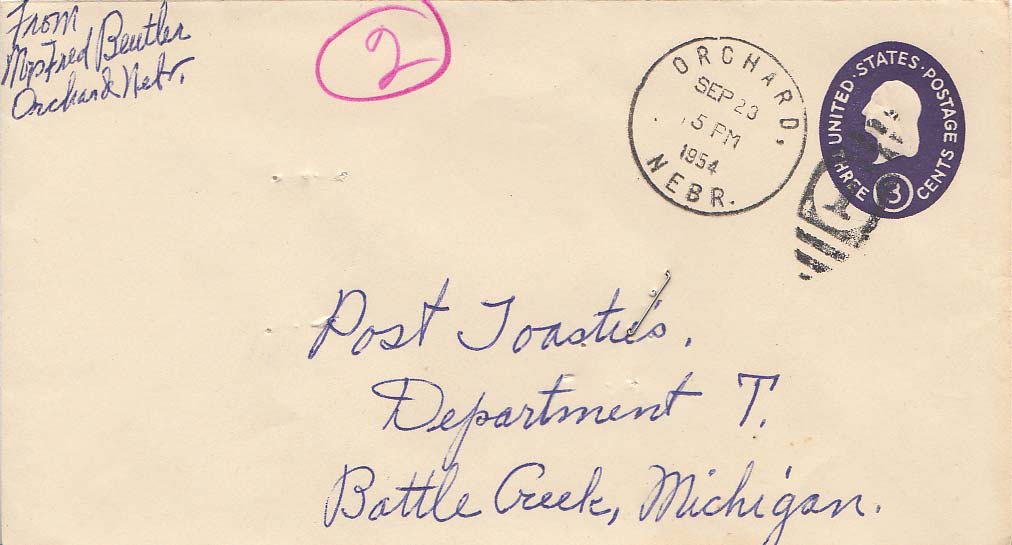 From
Mrs Fred Beutler
Orchard Nebr.
2
ORCHARD,
SEP 23
5 PM
1954
NEBR.
UNITED·STATES·POSTAGE
THREE 3 CENTS
1
Post Toastie's.
Department T.
Battle Creek, Michigan.